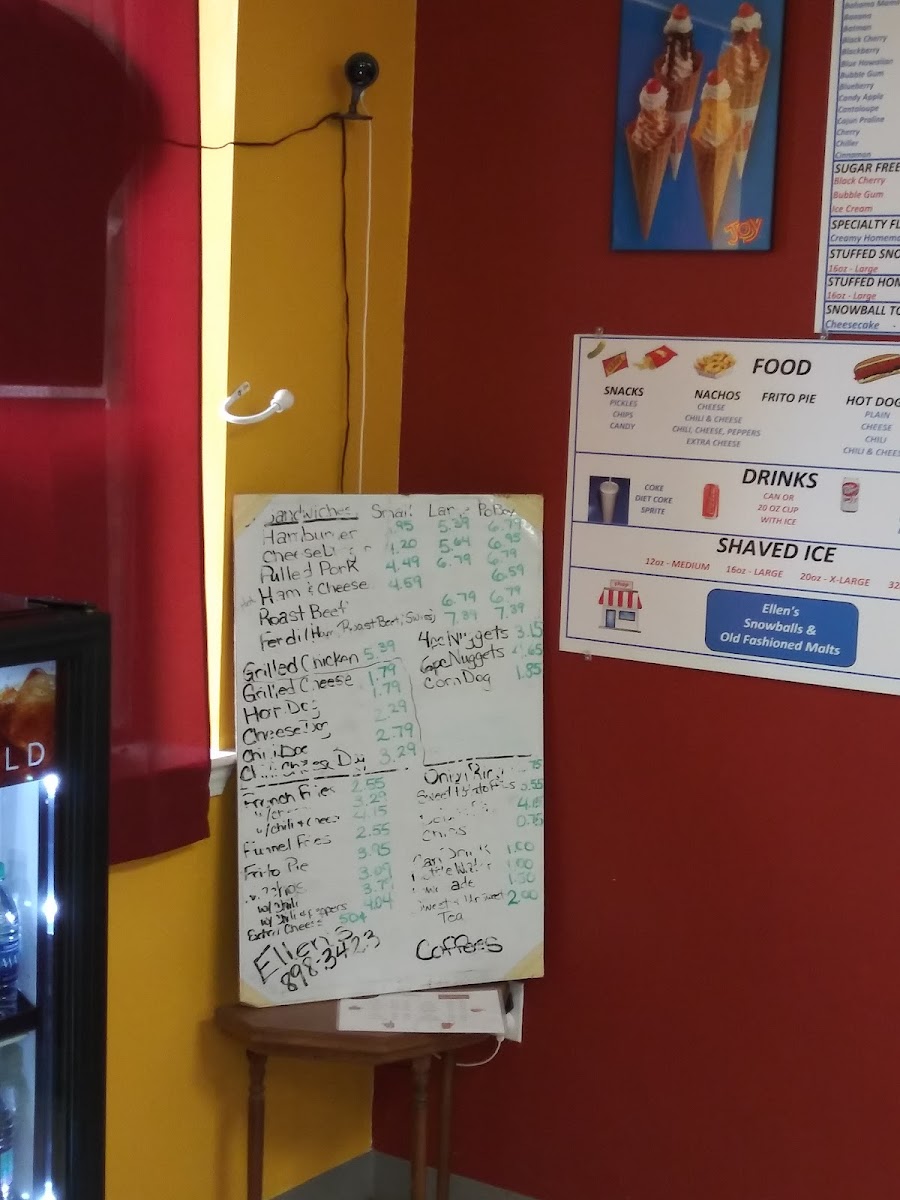 Bahama Mama
Banana
Batman
Black Cherry
Blackberry
Blue Hawaiian
Bubble Gum
Blueberry
Candy Apple
Cantaloupe
Cajun Praline
Cherry
Chiller
Cinnamon
SUGAR FREE
Black Cherry
Bubble Gum
Ice Cream
SPECIALTY FL
Creamy Homema
STUFFED SNO
16oz - Large
STUFFED HOM
16oz - Large
SNOWBALL TO
Cheesecake
JOY
FOOD
SNACKS
PICKLES
CHIPS
CANDY
NACHOS
CHEESE
CHILI & CHEESE
CHILI, CHEESE, PEPPERS
EXTRA CHEESE
FRITO PIE
HOT DOG
PLAIN
CHEESE
CHILI
CHILI & CHEES
DRINKS
COKE
DIET COKE
SPRITE
CAN OR
20 OZ CUP
WITH ICE
SHAVED ICE
12oz - MEDIUM 16oz - LARGE 20oz - X-LARGE 32
Ellen's
Snowballs &
Old Fashioned Malts
Sandwiches Small PoBoy
Hamburger .95 5.39 6.79
4.20 5.64 6.95
Pulled Pork 4.49 6.79 6.79
Ham & Cheese 4.59 6.59
Roast Beef 6.79 6.79
Roast Beef, Swiss) 7.39 7.39
Grilled Chicken 5.39
Grilled Cheese 1.79
Hot Dog 1.79
Cheese Dog 2.29
Chili Dog 2.79
Chili Cheese Dog 3.29
4pc Nuggets 3.15
6pc Nuggets .65
Corn Dog 1.85
French Fries 2.55
3.29
w/chili & cheese 4.15
Funnel Fries 2.55
Frito Pie 3.95
3.09
w/ chili 3.79
4.04
Extra Cheese 50¢
.75
Sweet Potato Fries 3.55
4.15
Chips 0.75
Can Drinks 1.00
1.00
ade 1.50
Sweet & UnSweet 2.00
Tea
Ellen's
898-3423
Coffees
LD